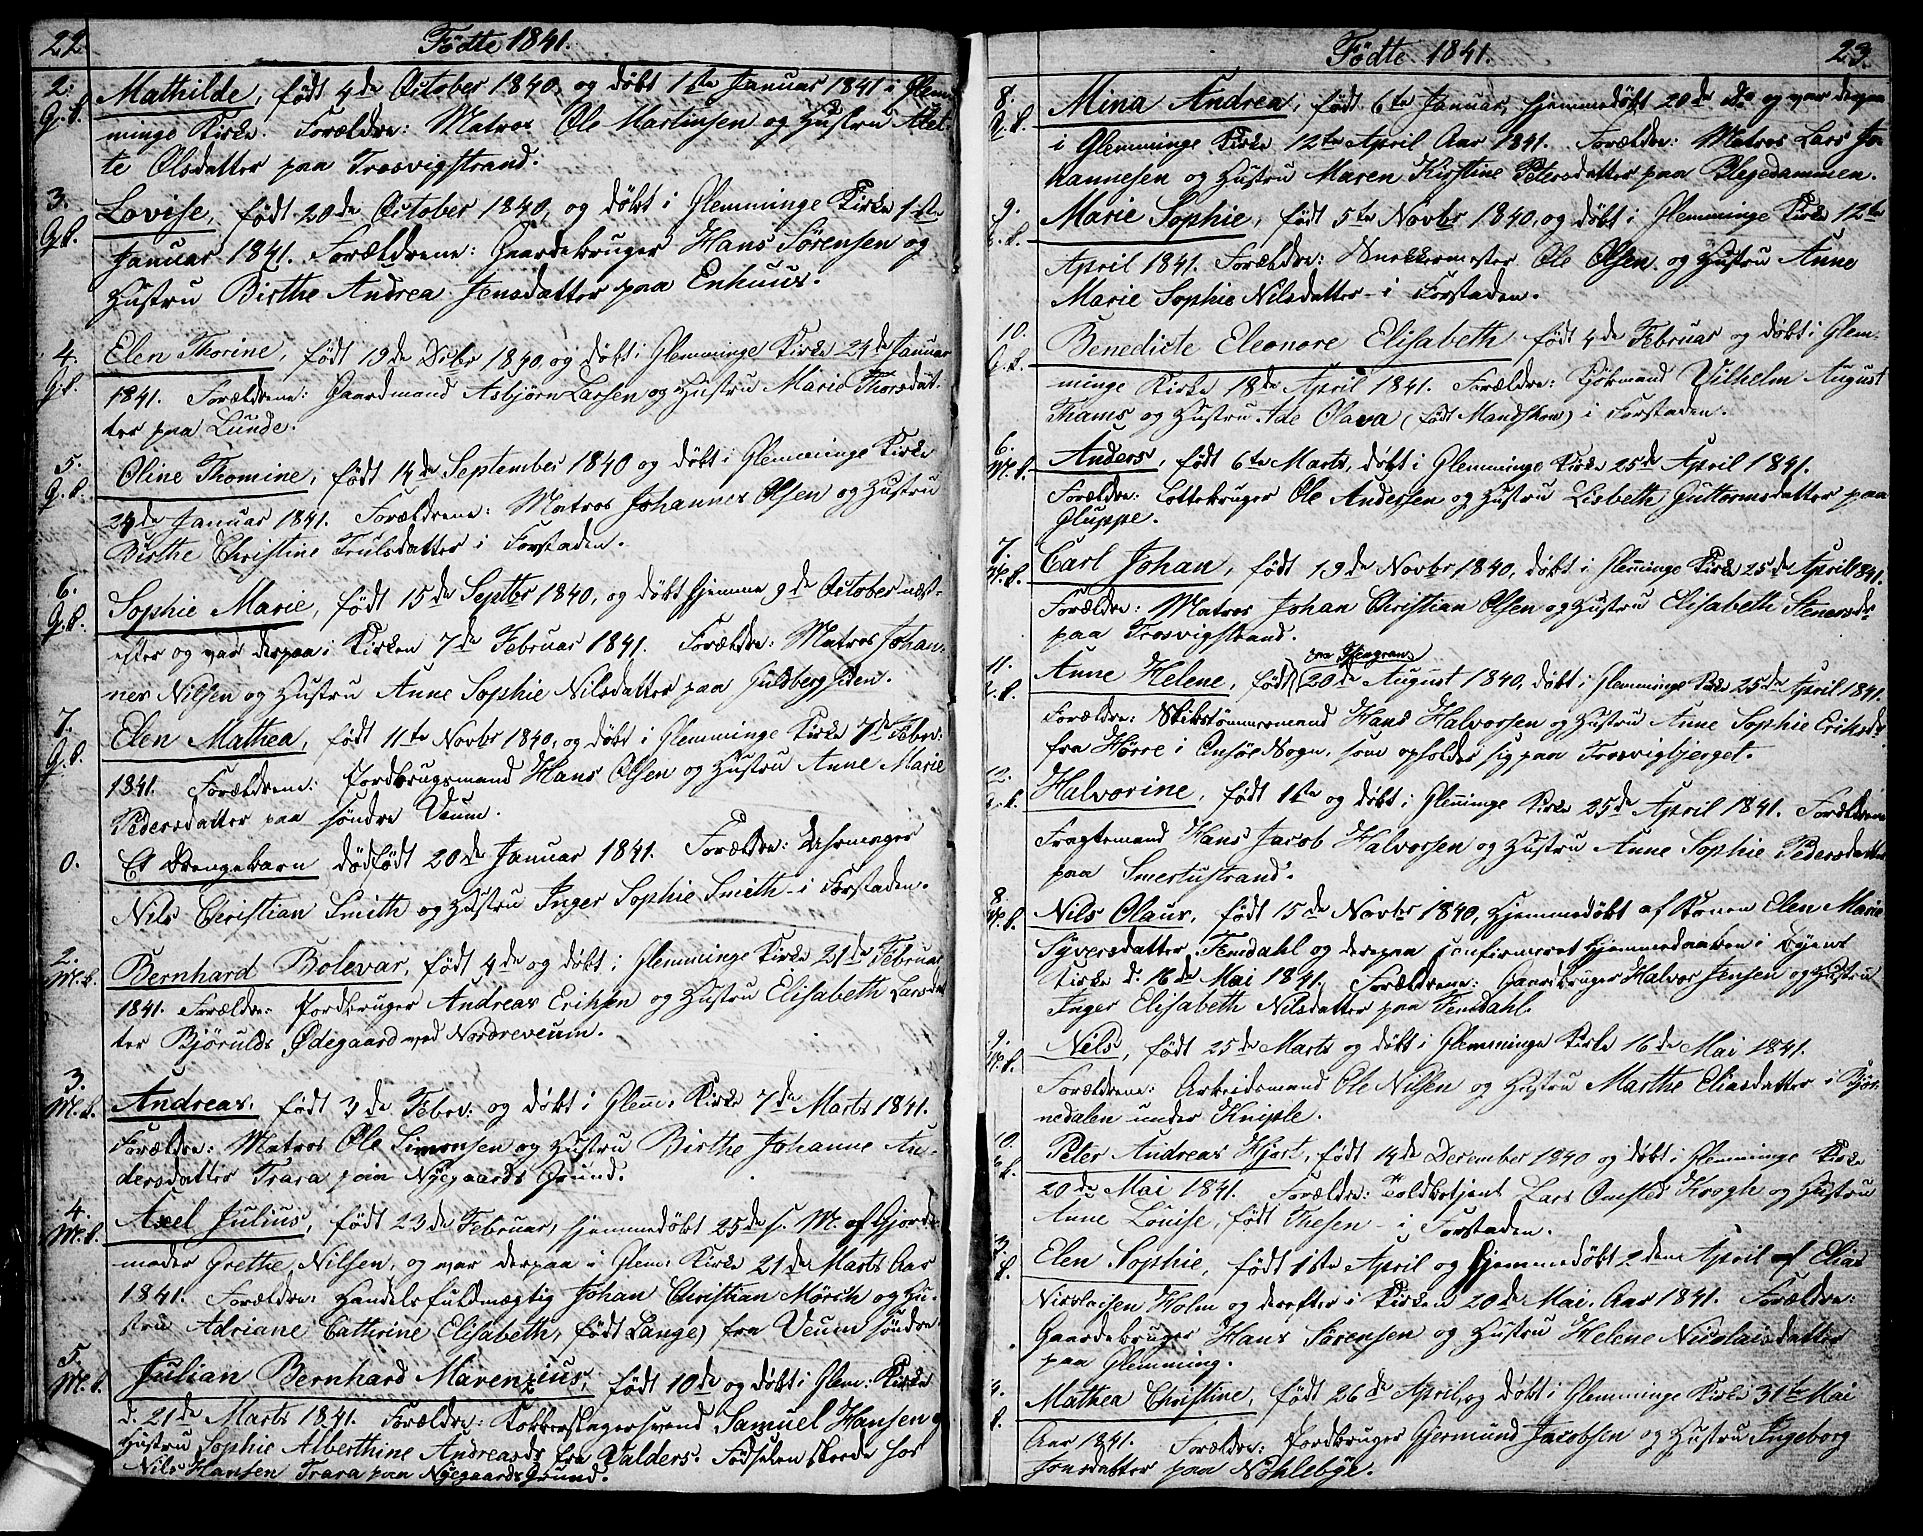 22.
Födte 1841.
2. Mathilde, födt 4de October 1840, og döbt 1ste Januar 1841 i Glem-
Q.K. minge Kirke. Forældre: Matros Ole Martinsen og Hustru Abel-
te Olsdatter paa Trosvigstrand.
3. Lovise, födt 20de October 1840, og döbt i Glemminge Kirke 1ste
Q.K. Januar 1841. Forældrene: Gaardbruger Hans Sörensen og
Hustru Birthe Andrea Jensdatter paa Enhuus.
4. Elen Thorine, födt 19de Decbr 1840, og döbt i Glemminge Kirke 24de Januar
Q.K. 1841. Forældrene: Gaardmand Asbjörn Larsen og Hustru Marie Thorsdat-
ter paa Lunde.
5. Oline Thomine, födt 14de September 1840 og döbt i Glemminge Kirke
Q.K. 24de Januar 1841. Forældrene: Matros Johannes Olsen og Hustru
Birthe Christine Trulsdatter i Forstaden.
6. Sophie Marie, födt 15de Septbr 1840, og döbt hjemme 9de October næst-
Q.K. efter og var derpaa i Kirken 7de Februar 1841. Forældre: Matros Johan-
nes Nilsen og Hustru Anne Sophie Nilsdatter paa Guldberg Eden.
7. Elen Mathea, födt 11te Novbr 1840, og döbt i Glemminge Kirke 7de Febr:
Q.K. 1841. Forældrene: Jordbrugsmand Hans Olsen og Hustru Anne Marie
Pedersdatter paa söndre Veum.
0. Et Drengebarn dödfödt 20de Januar 1841. Forældre: Uhrmager
Nils Christian Smith og Hustru Inger Sophie Smith i Forstaden.
2. Bernhard Bolevar, födt 4de og döbt i Glemminge Kirke 21de Februar
M.K. 1841. Forældre: Jordbruger Andreas Eriksen og Hustru Elisabeth Larsdat-
ter Björulds Ødegaard ved Nordreveum.
3. Andreas, födt 3de Febr: og döbt i Glem: Kirke 7de Marts 1841.
M.K. Forældre: Matros Ole Simonsen og Hustru Birthe Johanne An-
dersdatter Trara paa Nygaards Grund.
4. Axel Julius, födt 23de Februar, hjemmedöbt 25de s. M. af Gjorde-
M.K. moder Grethe Nilsen, og var derpaa i Glem: Kirke 21de Marts Aar
1841. Forældre: Handelsfuldmægtig Johan Christian Mörch og Hu-
stru Adriane Cathrine Elisabeth, födt Lange) fra Veum söndre.
5. Julian Bernhard Marenzius, födt 10de og döbt i Glem: Kirke
M.K. d. 21de Marts 1841. Forældre: Kobberslagersvend Samuel Hansen og
Hustru Sophie Alberthine Andreasd: fra Valders. Födselen skede hos
Nils Hansen Trara paa Nyegaards Grund.
Födte 1841.
23.
8. Mina Andrea, födt 6te Januar, hjemmedöbt 20de do og var derpaa
Q.K. i Glemminge Kirke 12te April Aar 1841. Forældre: Matros Lars Jo-
hannesen og Hustru Maren Kirstine Petersdatter paa Blegedammen.
9. Marie Sophie, födt 5te Novbr 1840, og döbt i Glemminge Kirke 12te
Q.K. April 1841. Forældre: Snekkermester Ole Olsen og Hustru Anne
Marie Sophie Nilsdatter i Forstaden.
10. Benedicte Eleonore Elisabeth födt 4de Februar og döbt i Glem-
Q.K. minge Kirke 18de April 1841. Forældre: Kjöbmand Vilhelm August
Thams og Hustru Ade Olava (födt Mandskow) i Forstaden.
6. Anders, födt 6te Marts, döbt i Glemminge Kirke 25de April 1841.
M.K. Forældre: Lottebruger Ole Andersen og Hustru Lisbeth Guttormsdatter paa
Gluppe.
7. Carl Johan, födt 19de Novbr 1840, döbt i Gleminge Kirke 25de April 1841.
M.K. Forældre: Matros Johan Christian Olsen og Hustru Elisabeth Stenersdr
paa Trosvigstrand.
11. Anne Helene, födt 20de August 1840, döbt i Glemminge Kirke 25de April 1841.
Q.K. Forældre: Skibstömmermand Hans Halvorsen og Hustru Anne Sophie Eriksdr
fra Hörre i Onsöe Sogn, som opholder sig paa Trosvigbjerget.
12. Halvorine, födt 1ste og döbt i Gleminge Kirke 25de April 1841. Forældrene
Q.K. Fragtemand Hans Jacob Halvorsen og Hustru Anne Sophie Pedersdatter
paa Smertustrand.
8. Nils Olaus, födt 15de Novbr 1840, hjemmedöbt af Konen Elen Marie
M.K. Syversdatter Temdahl og derpaa confirmeret hjemmedaaben i Byens
Kirke d: 16de Mai 1841. Forældrene: Gaardbruger Halvor Jensen og Hustru
Inger Elisabeth Nilsdatter paa Temdahl.
9. Nils, födt 25de Marts og döbt i Glemminge Kirke 16de Mai 1841.
M.K. Forældrene: Arbeidsmand Ole Nilsen og Hustru Marthe Eliasdatter i Björ-
nedalen under Kniple.
10. Peter Andreas Hjort, födt 14de December 1840 og döbt i Glemminge Kirke
20de Mai 1841. Forældre: Toldbetjent Lars Omsted Krogh og Hustru
Anne Louise, födt Thesen i Forstaden.
3. Elen Sophie, födt 1ste April og hjemmedöbt 2den April af Elias
Nicolaisen Holm og derefter i Kirken 20de Mai Aar 1841. Forældre:
Gaardbruger Hans Sörensen og Hustru Helene Nicolaisdatter
paa Glemming.
4. Mathea Christine, födt 26de April, og döbt i Glemminge Kirke 31te Mai
Aar 1841. Forældre: Jordbruger Gjermund Jacobsen og Hustru Ingeborg
Jonsdatter paa Nöhlebye.